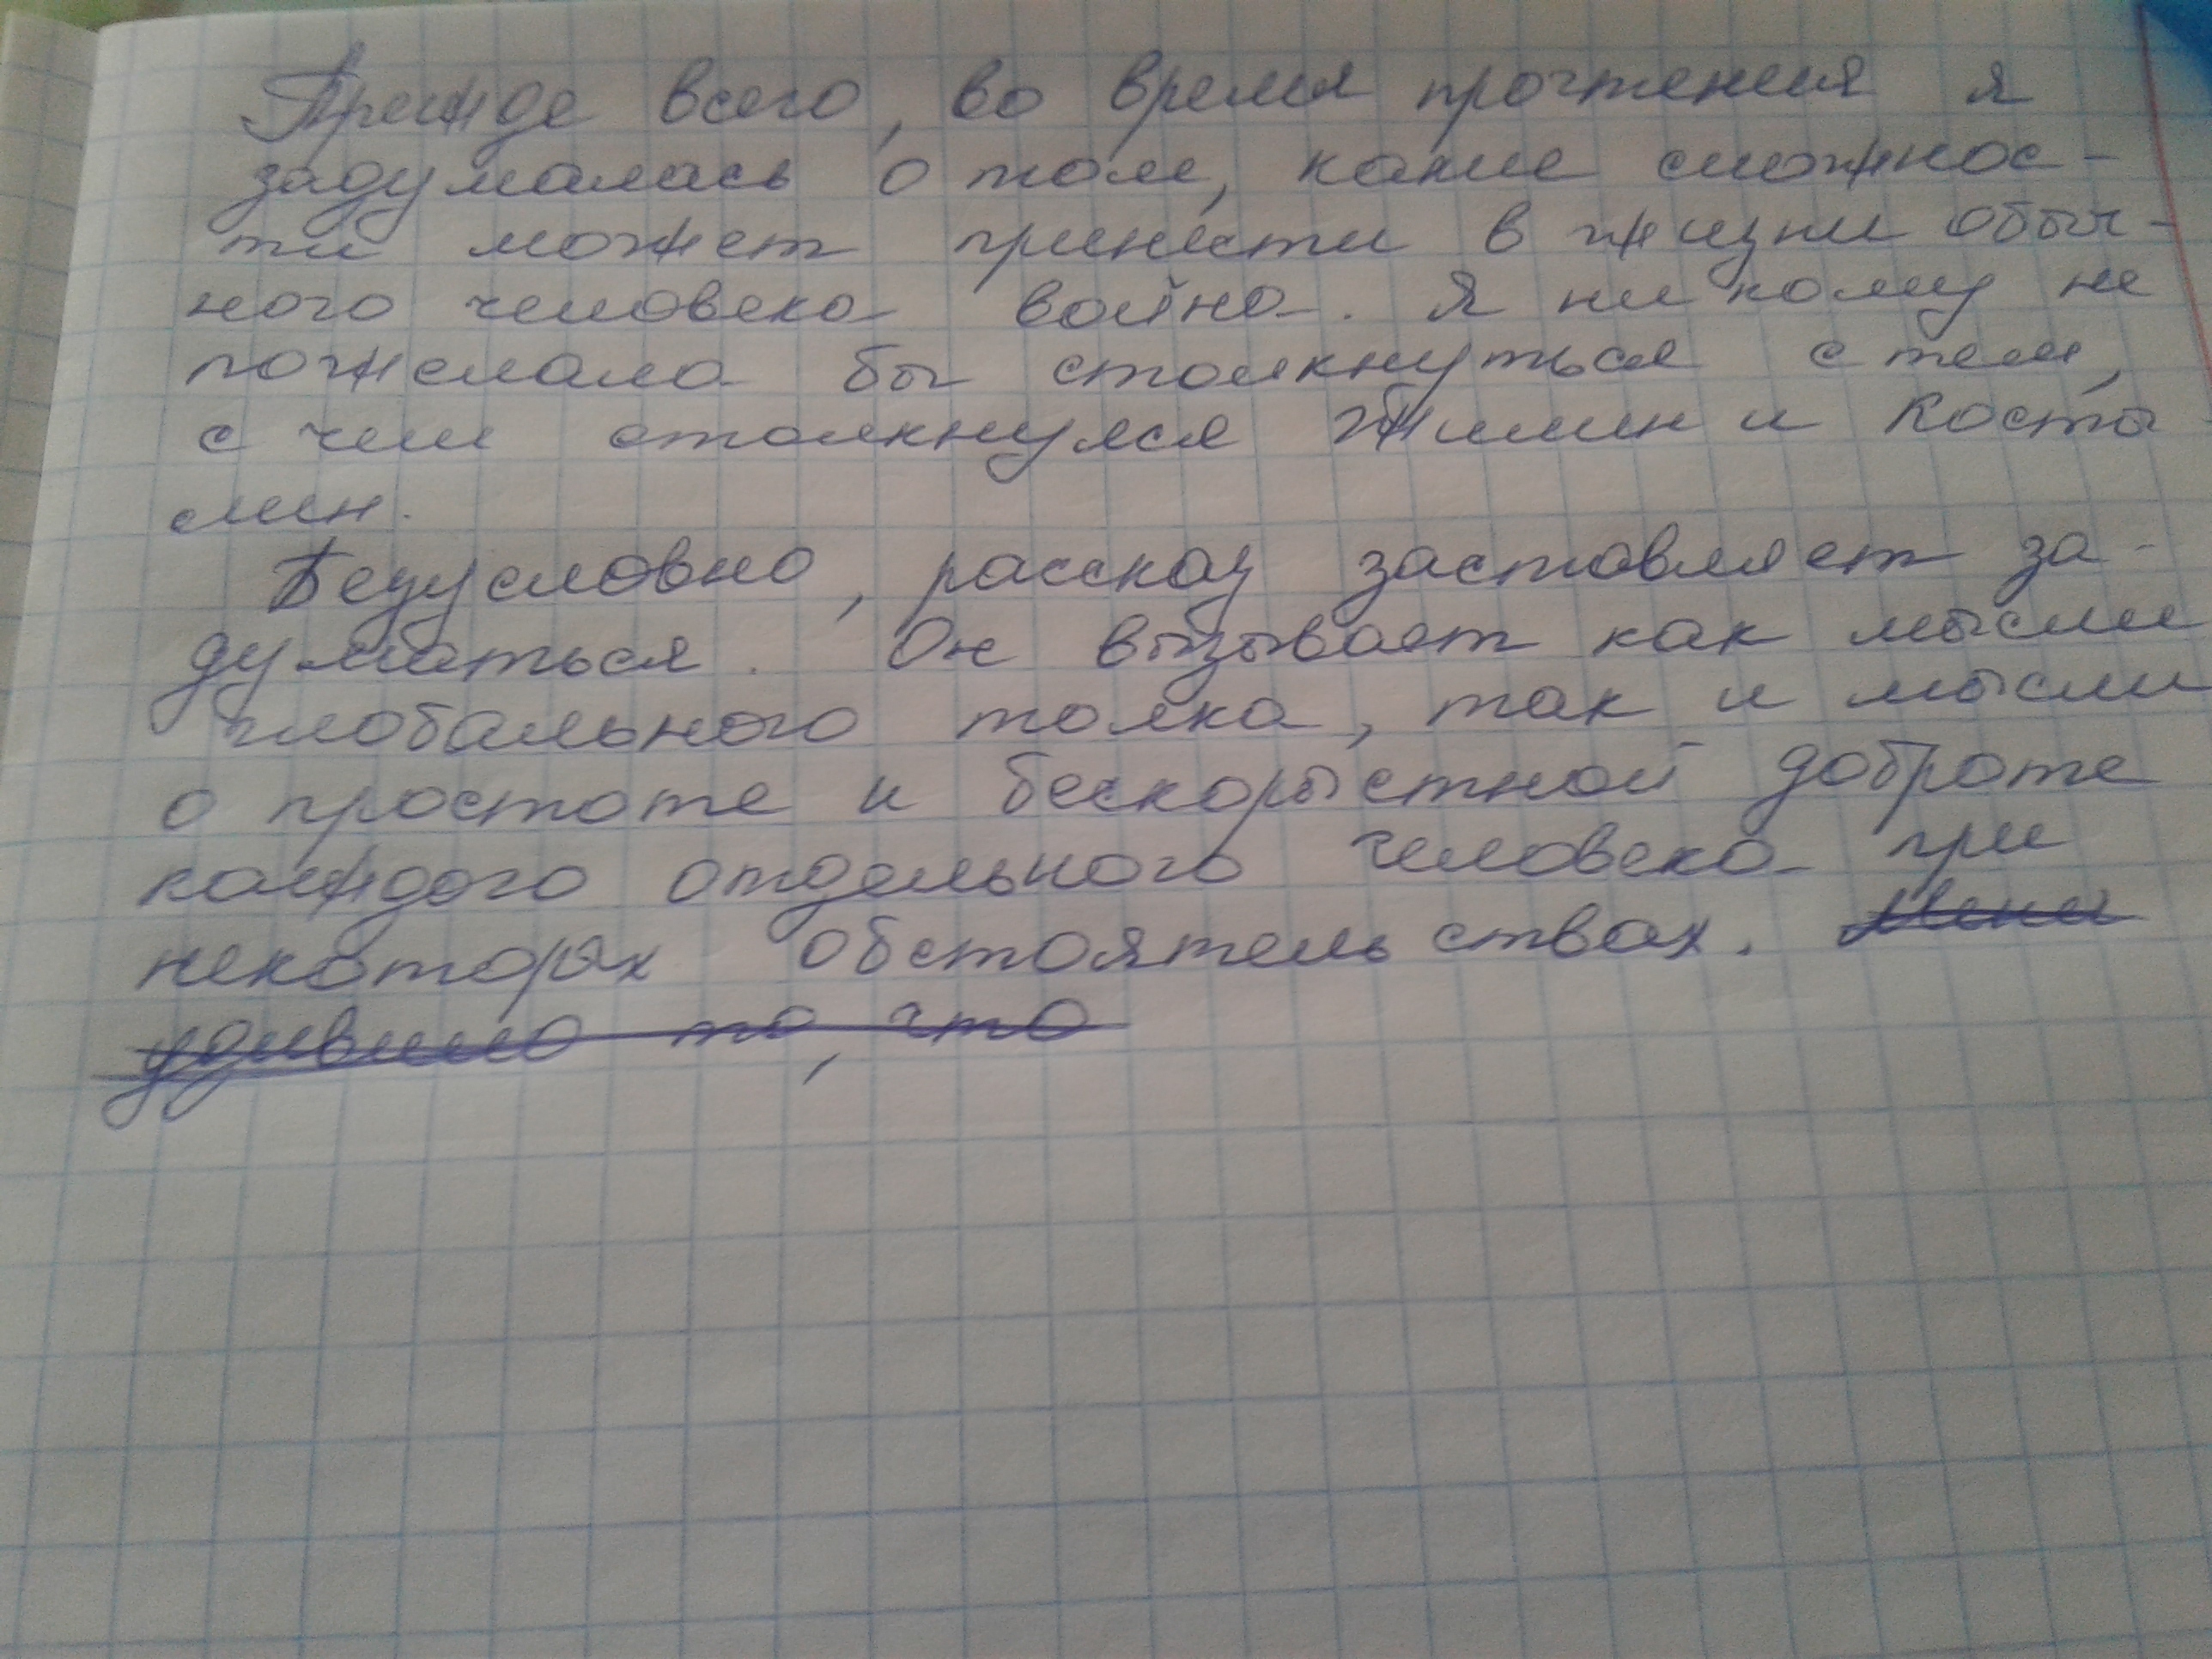 Прежде всего, во время прочтения я
задумалась о том, какие сложнос-
ти может принести в жизни обыч-
ного человека война. Я ни кому не
пожелала бы столкнуться с тем,
с чем столкнулся Жилин и Косты
лин.
Безусловно, рассказ заставляет за-
думаться. Он вызывает как мысли
глобального толка, так и мысли
о простоте и бескорыстной доброте
каждого отдельного человека при
некоторых обстоятельствах. Меня
удивило то, что